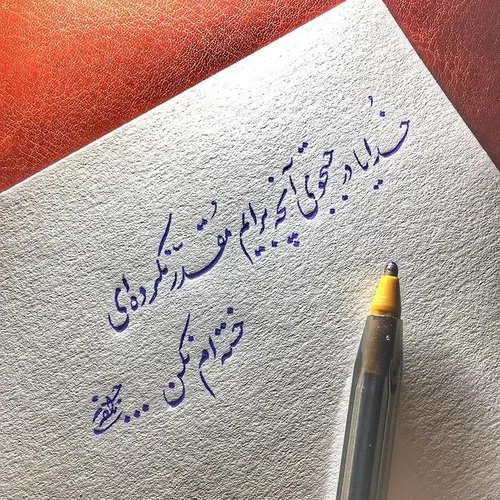 خدایا در جستجوی آنچه برایم مقدّر نکرده‌ای
خسته‌ام نکن ...